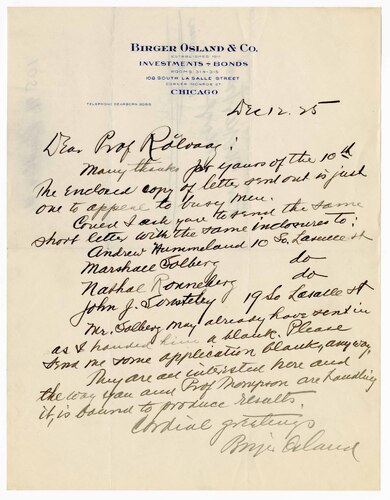 BIRGER OSLAND & CO.
ESTABLISHED 1911
INVESTMENTS - BONDS
ROOMS 314-315
108 SOUTH LA SALLE STREET
CORNER MONROE ST.
CHICAGO
TELEPHONE DEARBORN
Dec 12. 25
Dear Prof Rölvaag:
Many thanks for yours of the 10th
The enclosed copy of letter sent out is just
one to appeal to busy men.
Could I ask you to send the same
short letter with the same enclosures to:
Andrew Hummeland 10 So. Lasalle st
Marshall Solberg do
Nathal Ronneberg do
John J. 19 So Lasalle st
Mr. Solberg may already have sent in
as I handed him a blank. Please
send me some application blank, anyway.
They are all interested here and
the way you and Prof Thompson are handling
it, is bound to produce results.
Cordial greetings
Birger Osland